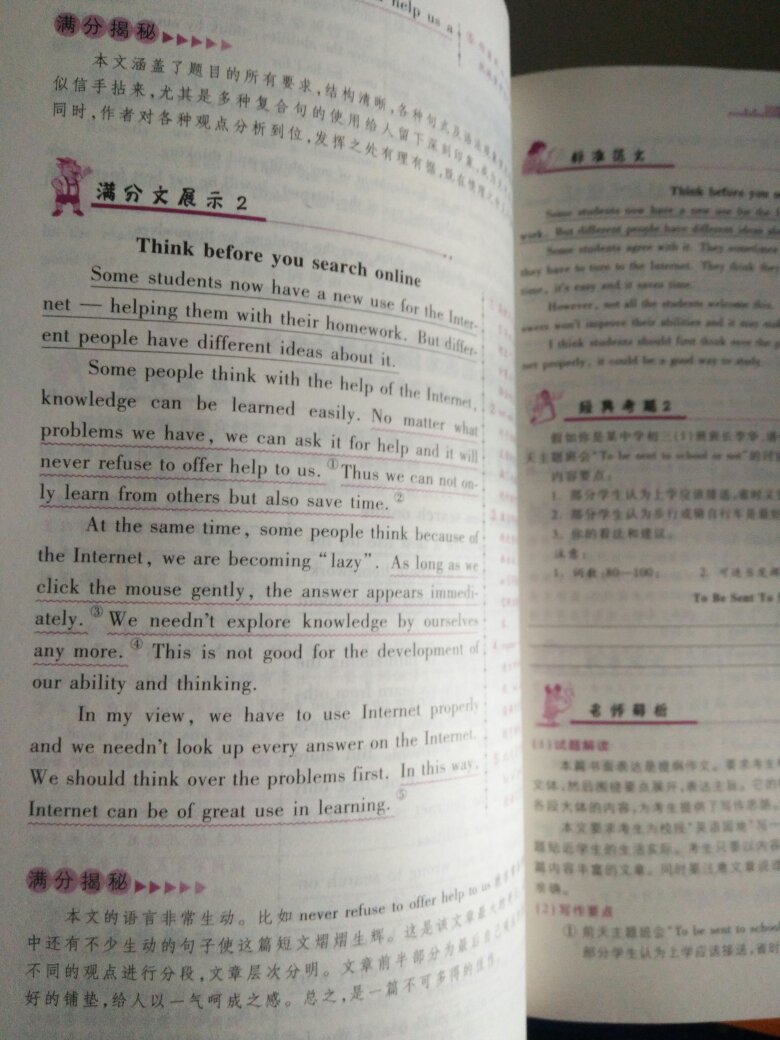 help us a
满分揭秘
本文涵盖了题目的所有要求,结构清晰,各种句式及语法现象
似信手拈来,尤其是多种复合句的使用给人留下深刻印象,
同时,作者对各种观点分析到位,发挥之处有理有据,既在情理之中
满分文展示2
Think before you search online
Some students now have a new use for the Inter-
net — helping them with their homework. But differ-
ent people have different ideas about it.
Some people think with the help of the Internet,
knowledge can be learned easily. No matter what
problems we have, we can ask it for help and it will
never refuse to offer help to us. ①Thus we can not on-
ly learn from others but also save time. ②
At the same time, some people think because of
the Internet, we are becoming "lazy". As long as we
click the mouse gently, the answer appears immedi-
ately. ③ We needn't explore knowledge by ourselves
any more. ④ This is not good for the development of
our ability and thinking.
In my view, we have to use Internet properly
and we needn't look up every answer on the Internet.
We should think over the problems first. In this way,
Internet can be of great use in learning. ⑤
满分揭秘
本文的语言非常生动。比如 never refuse to offer help to us
中还有不少生动的句子使这篇短文熠熠生辉。这是该文章最大的
不同的观点进行分段,文章层次分明。文章前半部分为最后自己
好的铺垫,给人以一气呵成之感。总之,是一篇不可多得的佳作。
标准范文
Think before you se
Some students now have a new use for the
work. But different people have different ideas
Some students agree with it. They sometimes
they have to turn to the Internet. They think
time, it's easy and it saves time.
However, not all the students welcome this.
swers won't improve their abilities and it may
I think students should first think over the p
net properly, it could be a good way to study.
经典考题2
假如你是某中学初三(1)班班长李华,
天主题班会"To be sent to school or not"的讨
内容要点:
1. 部分学生认为上学应该接送,省时又
2. 部分学生认为步行或骑自行车是最好
3. 你的看法和建议。
注意:
1. 词数:80—100; 2. 可适当发挥
To Be Sent To S
名师解析
(1)试题解读
本篇书面表达是提纲作文。要求考生
文体,然后围绕要点展开,表达主旨。它的
各段大体的内容,为考生提供了写作思路
本文要求考生为校段"英语园地"写一
题贴近学生的生活实际。考生只要以内容
篇内容丰富的文章。同时要注意文章说
准确。
(2)写作要点
① 前天主题班会"To be sent to school
部分学生认为上学应该接送,省时